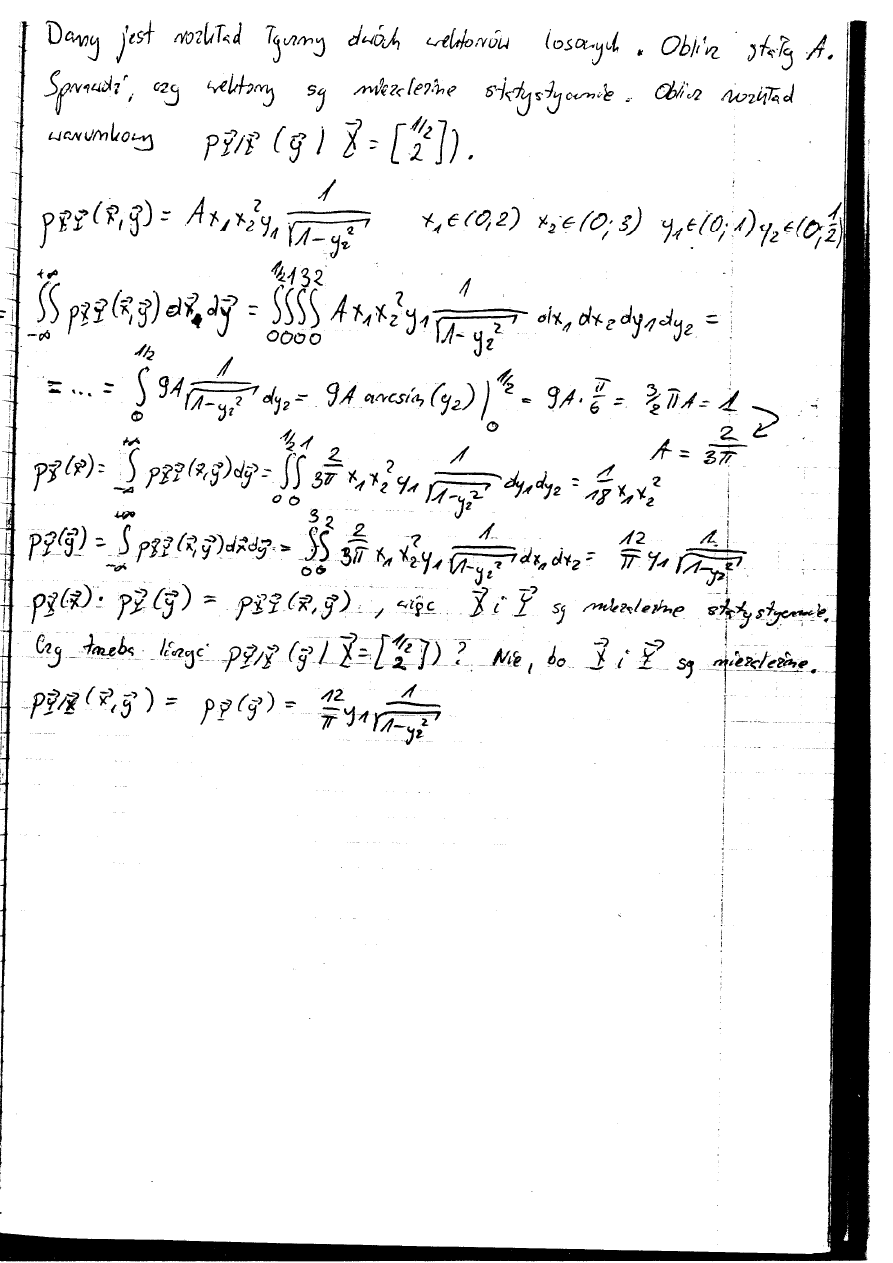 Dany jest rozkład łączny dwóch wektorów losowych. Oblicz stałą A.
Sprawdź, czy wektory są niezależne statystycznie. Oblicz rozkład
warunkowy p_{Y⃗/X⃗}(y⃗ | X⃗ = [1/2 2]).
p_{X⃗Y⃗}(x⃗,y⃗) = A x₁x₂²y₁ 1/√(1-y₂²)   x₁∈(0,2) x₂∈(0;3) y₁∈(0;1) y₂∈(0;1/2)
∬_{-∞}^{+∞} p_{X⃗Y⃗}(x⃗,y⃗)dx⃗ dy⃗ = ∫₀^{1/2}∫₀^1∫₀^3∫₀^2 A x₁x₂²y₁ 1/√(1-y₂²) dx₁dx₂dy₁dy₂ =
= ... = ∫₀^{1/2} 9A 1/√(1-y₂²) dy₂ = 9A arcsin(y₂)|₀^{1/2} = 9A·π/6 = 3/2 πA = 1
A = 2/3π
p_{X⃗}(x⃗) = ∫_{-∞}^{+∞} p_{X⃗Y⃗}(x⃗,y⃗)dy⃗ = ∫₀^{1/2}∫₀^1 2/3π x₁x₂²y₁ 1/√(1-y₂²) dy₁dy₂ = 1/18 x₁x₂²
p_{Y⃗}(y⃗) = ∫_{-∞}^{+∞} p_{X⃗Y⃗}(x⃗,y⃗)dx⃗dy⃗ = ∫₀^3∫₀^2 2/3π x₁x₂²y₁ 1/√(1-y₂²) dx₁dx₂ = 12/π y₁ 1/√(1-y₂²)
p_{X⃗}(x⃗) · p_{Y⃗}(y⃗) = p_{X⃗Y⃗}(x⃗,y⃗), więc X⃗ i Y⃗ są niezależne statystycznie.
Czy trzeba liczyć p_{Y⃗/X⃗}(y⃗ | X⃗ = [1/2 2])? Nie, bo X⃗ i Y⃗ są niezależne.
p_{Y⃗/X⃗}(x⃗,y⃗) = p_{Y⃗}(y⃗) = 12/π y₁ 1/√(1-y₂²)